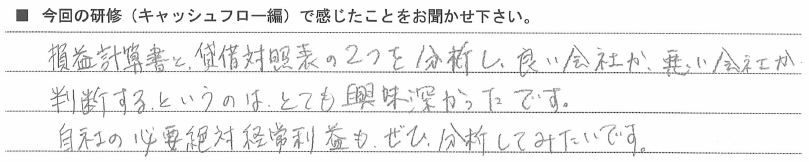 ■ 今回の研修（キャッシュフロー編）で感じたことをお聞かせ下さい。
損益計算書と、貸借対照表の2つを分析し、良い会社か、悪い会社か
判断する、というのは、とても興味深かったです。
自社の必要絶対経常利益も、ぜひ、分析してみたいです。